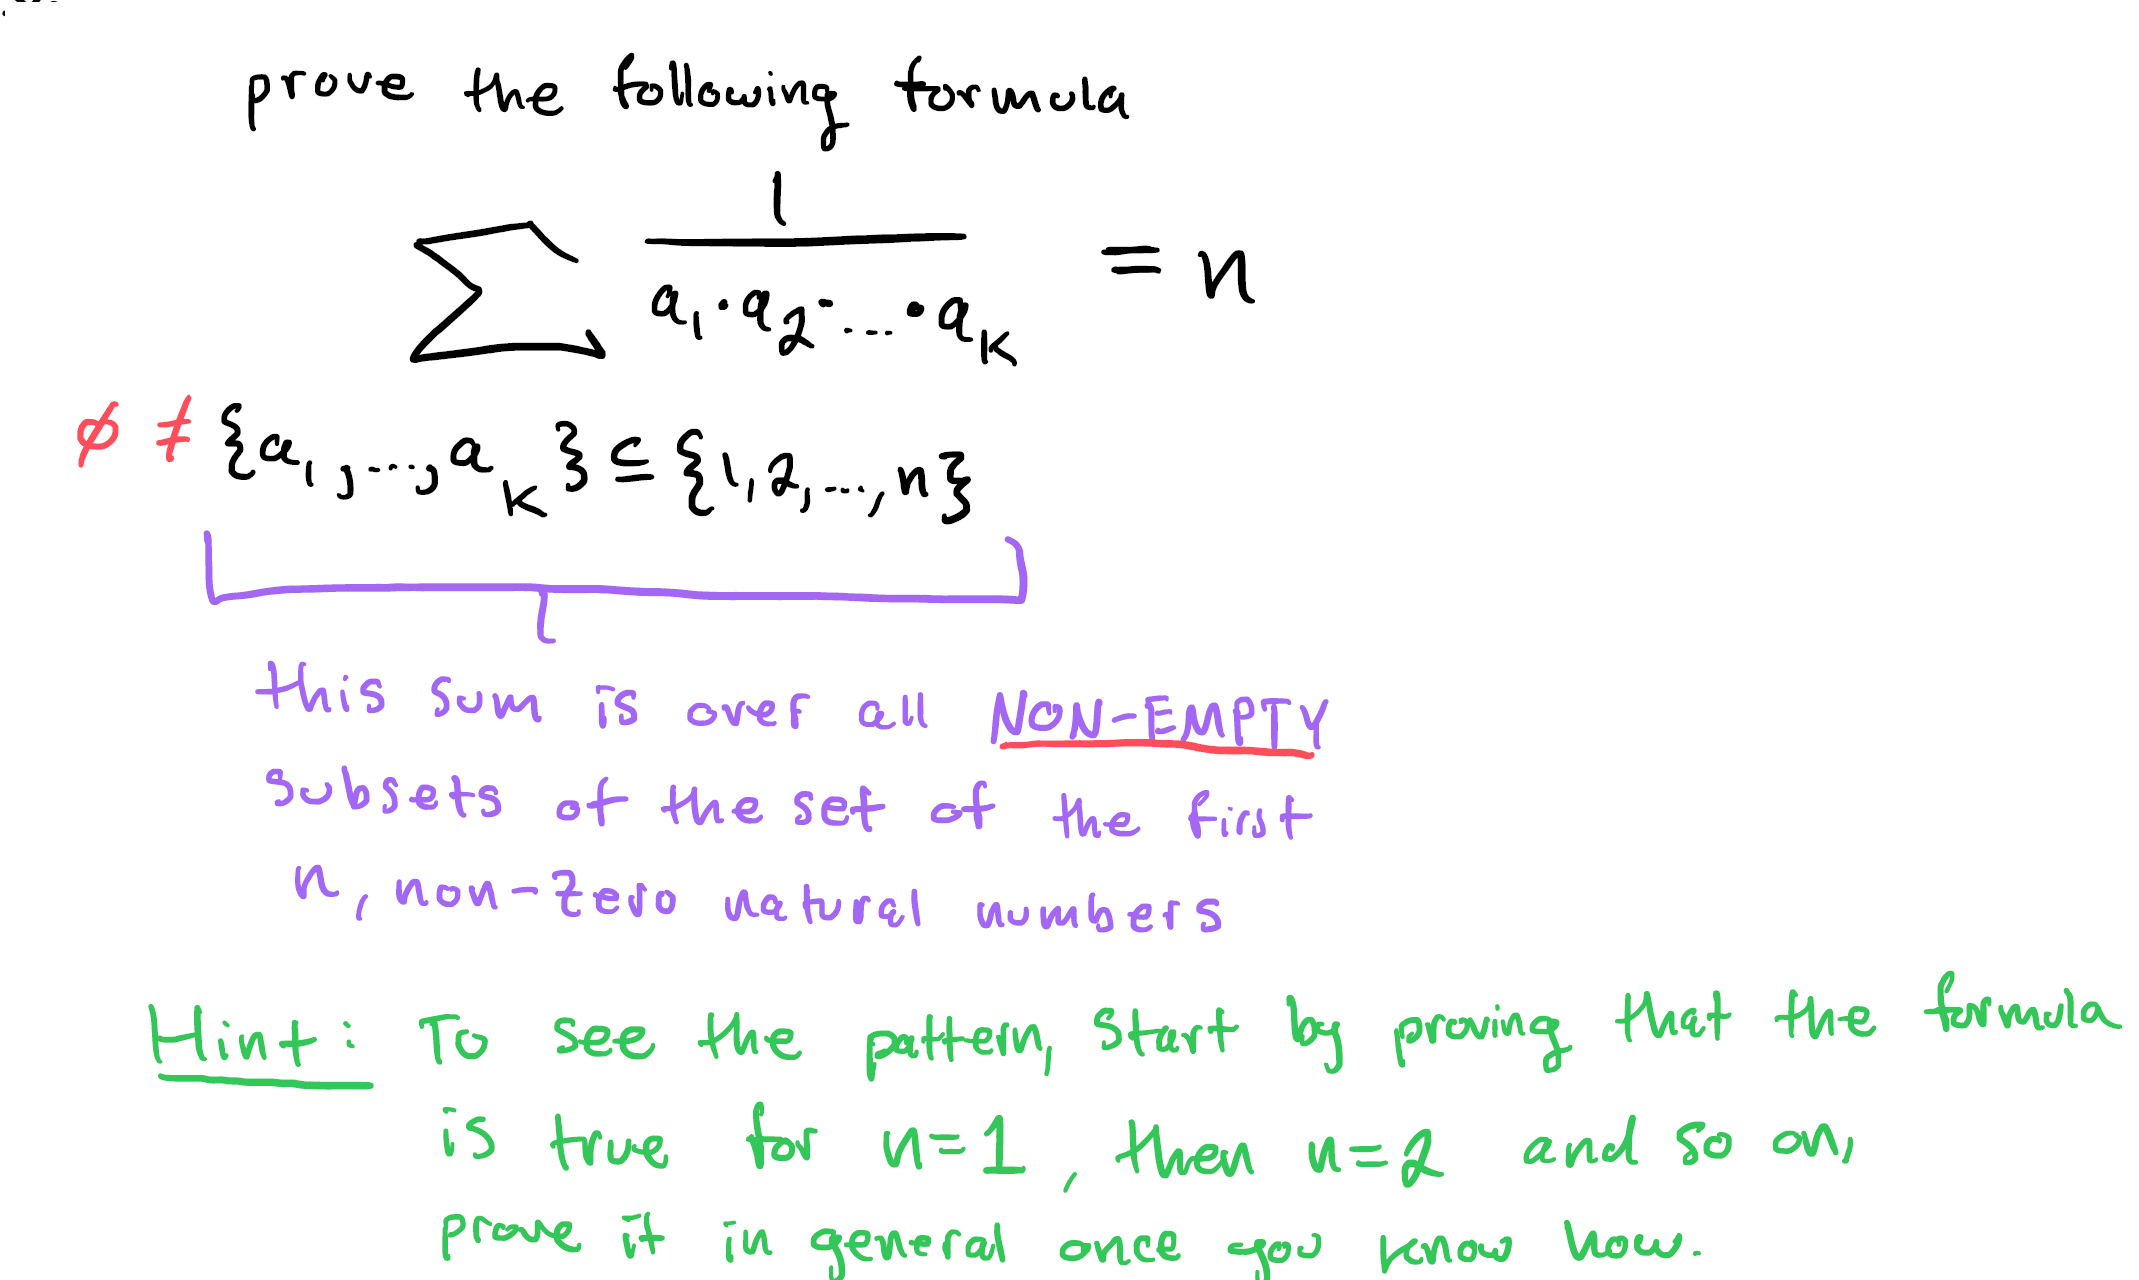 prove the following formula
∑ 1 / (a₁ · a₂ · ... · aₖ) = n
∅ ≠ {a₁, ..., aₖ} ⊆ {1, 2, ..., n}
this sum is over all NON-EMPTY
subsets of the set of the first
n, non-zero natural numbers
Hint: To see the pattern, start by proving that the formula
is true for n=1, then n=2 and so on,
prove it in general once you know how.